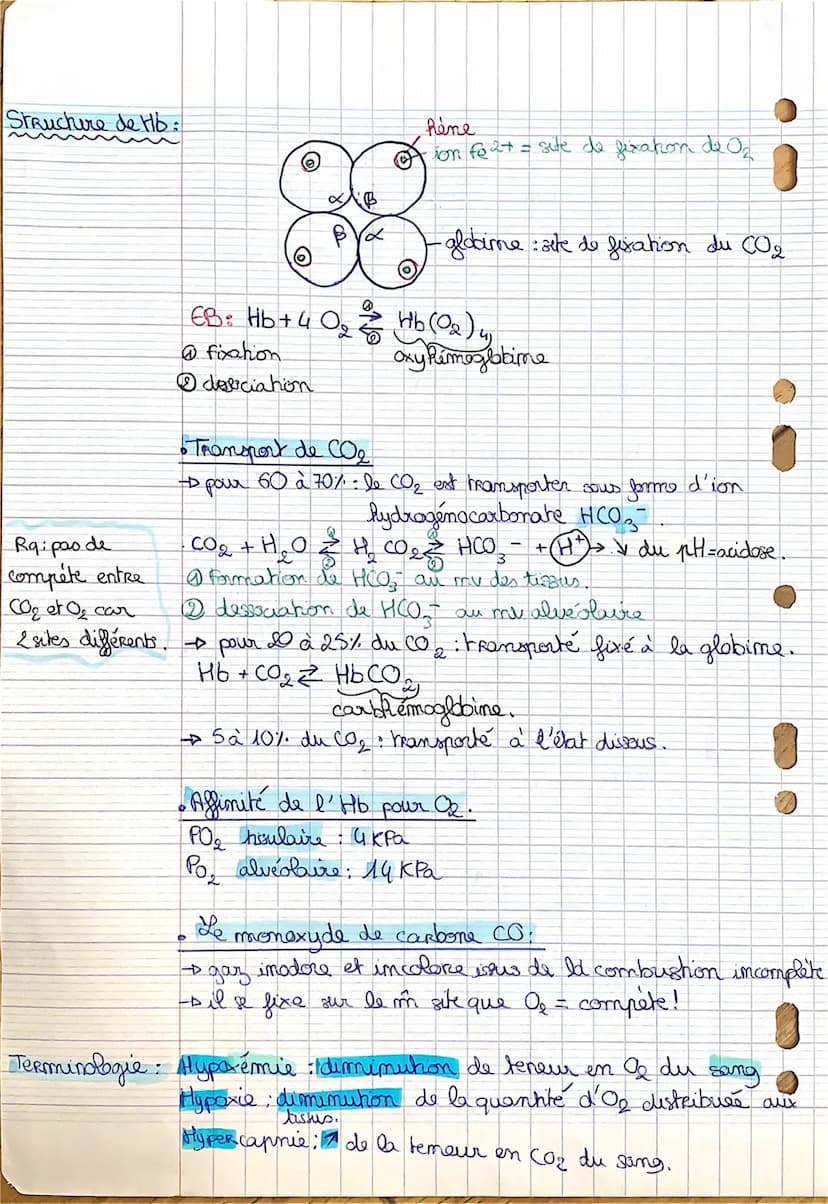 Structure de Hb :
hème
ion Fe2+ = site de fixation de O2
α β
β α
globine : site de fixation du CO2
EB : Hb + 4 O2 ① ⇄ ② Hb(O2)4
① fixation oxyhémoglobine
② dessciation
• Transport de CO2
→ pour 60 à 70% : le CO2 est transporter sous forme d'ion
hydrogénocarbonate HCO3-.
CO2 + H2O ① ⇄ ② H2CO2 ① ⇄ ② HCO3- + H+ → ↘ du pH = acidose.
① formation de HCO3- au nv des tissus.
② dessociation de HCO3- au nv alvéolaire
Rq : pas de
compéte entre
CO2 et O2 car
2 sites différents.
→ pour 20 à 25% du CO2 : transporté fixé à la globine.
Hb + CO2 ⇄ HbCO2
carbhémoglobine.
→ 5 à 10% du CO2 : transporté à l'état dissous.
• Affinité de l'Hb pour O2.
PO2 tissulaire : 4 KPa
PO2 alvéolaire : 14 KPa
• Le monoxyde de carbone CO :
→ gaz inodore et incolore issus de la combustion incomplète
→ il se fixe sur le m̂ site que O2 = compète !
Terminologie : Hypoxémie : diminution de teneur en O2 du sang
Hypoxie : diminution de la quantité d'O2 distribuée aux
tissus.
Hypercapnie : ↗ de la teneur en CO2 du sang.